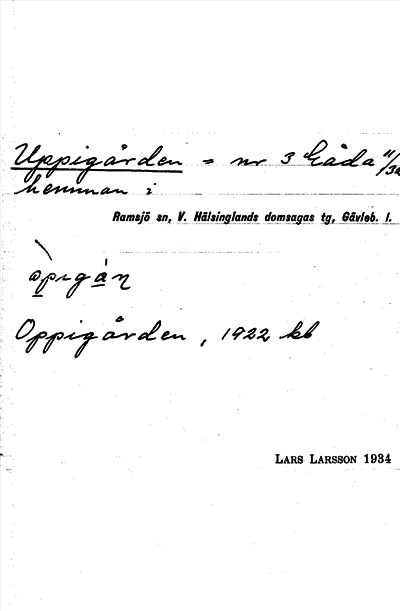 Uppigården = nr 3 Gåda 11/32
hemman i
Ramsjö sn, V. Hälsinglands domsagas tg, Gävleb. l.
Oppigården, 1922 kb
LARS LARSSON 1934